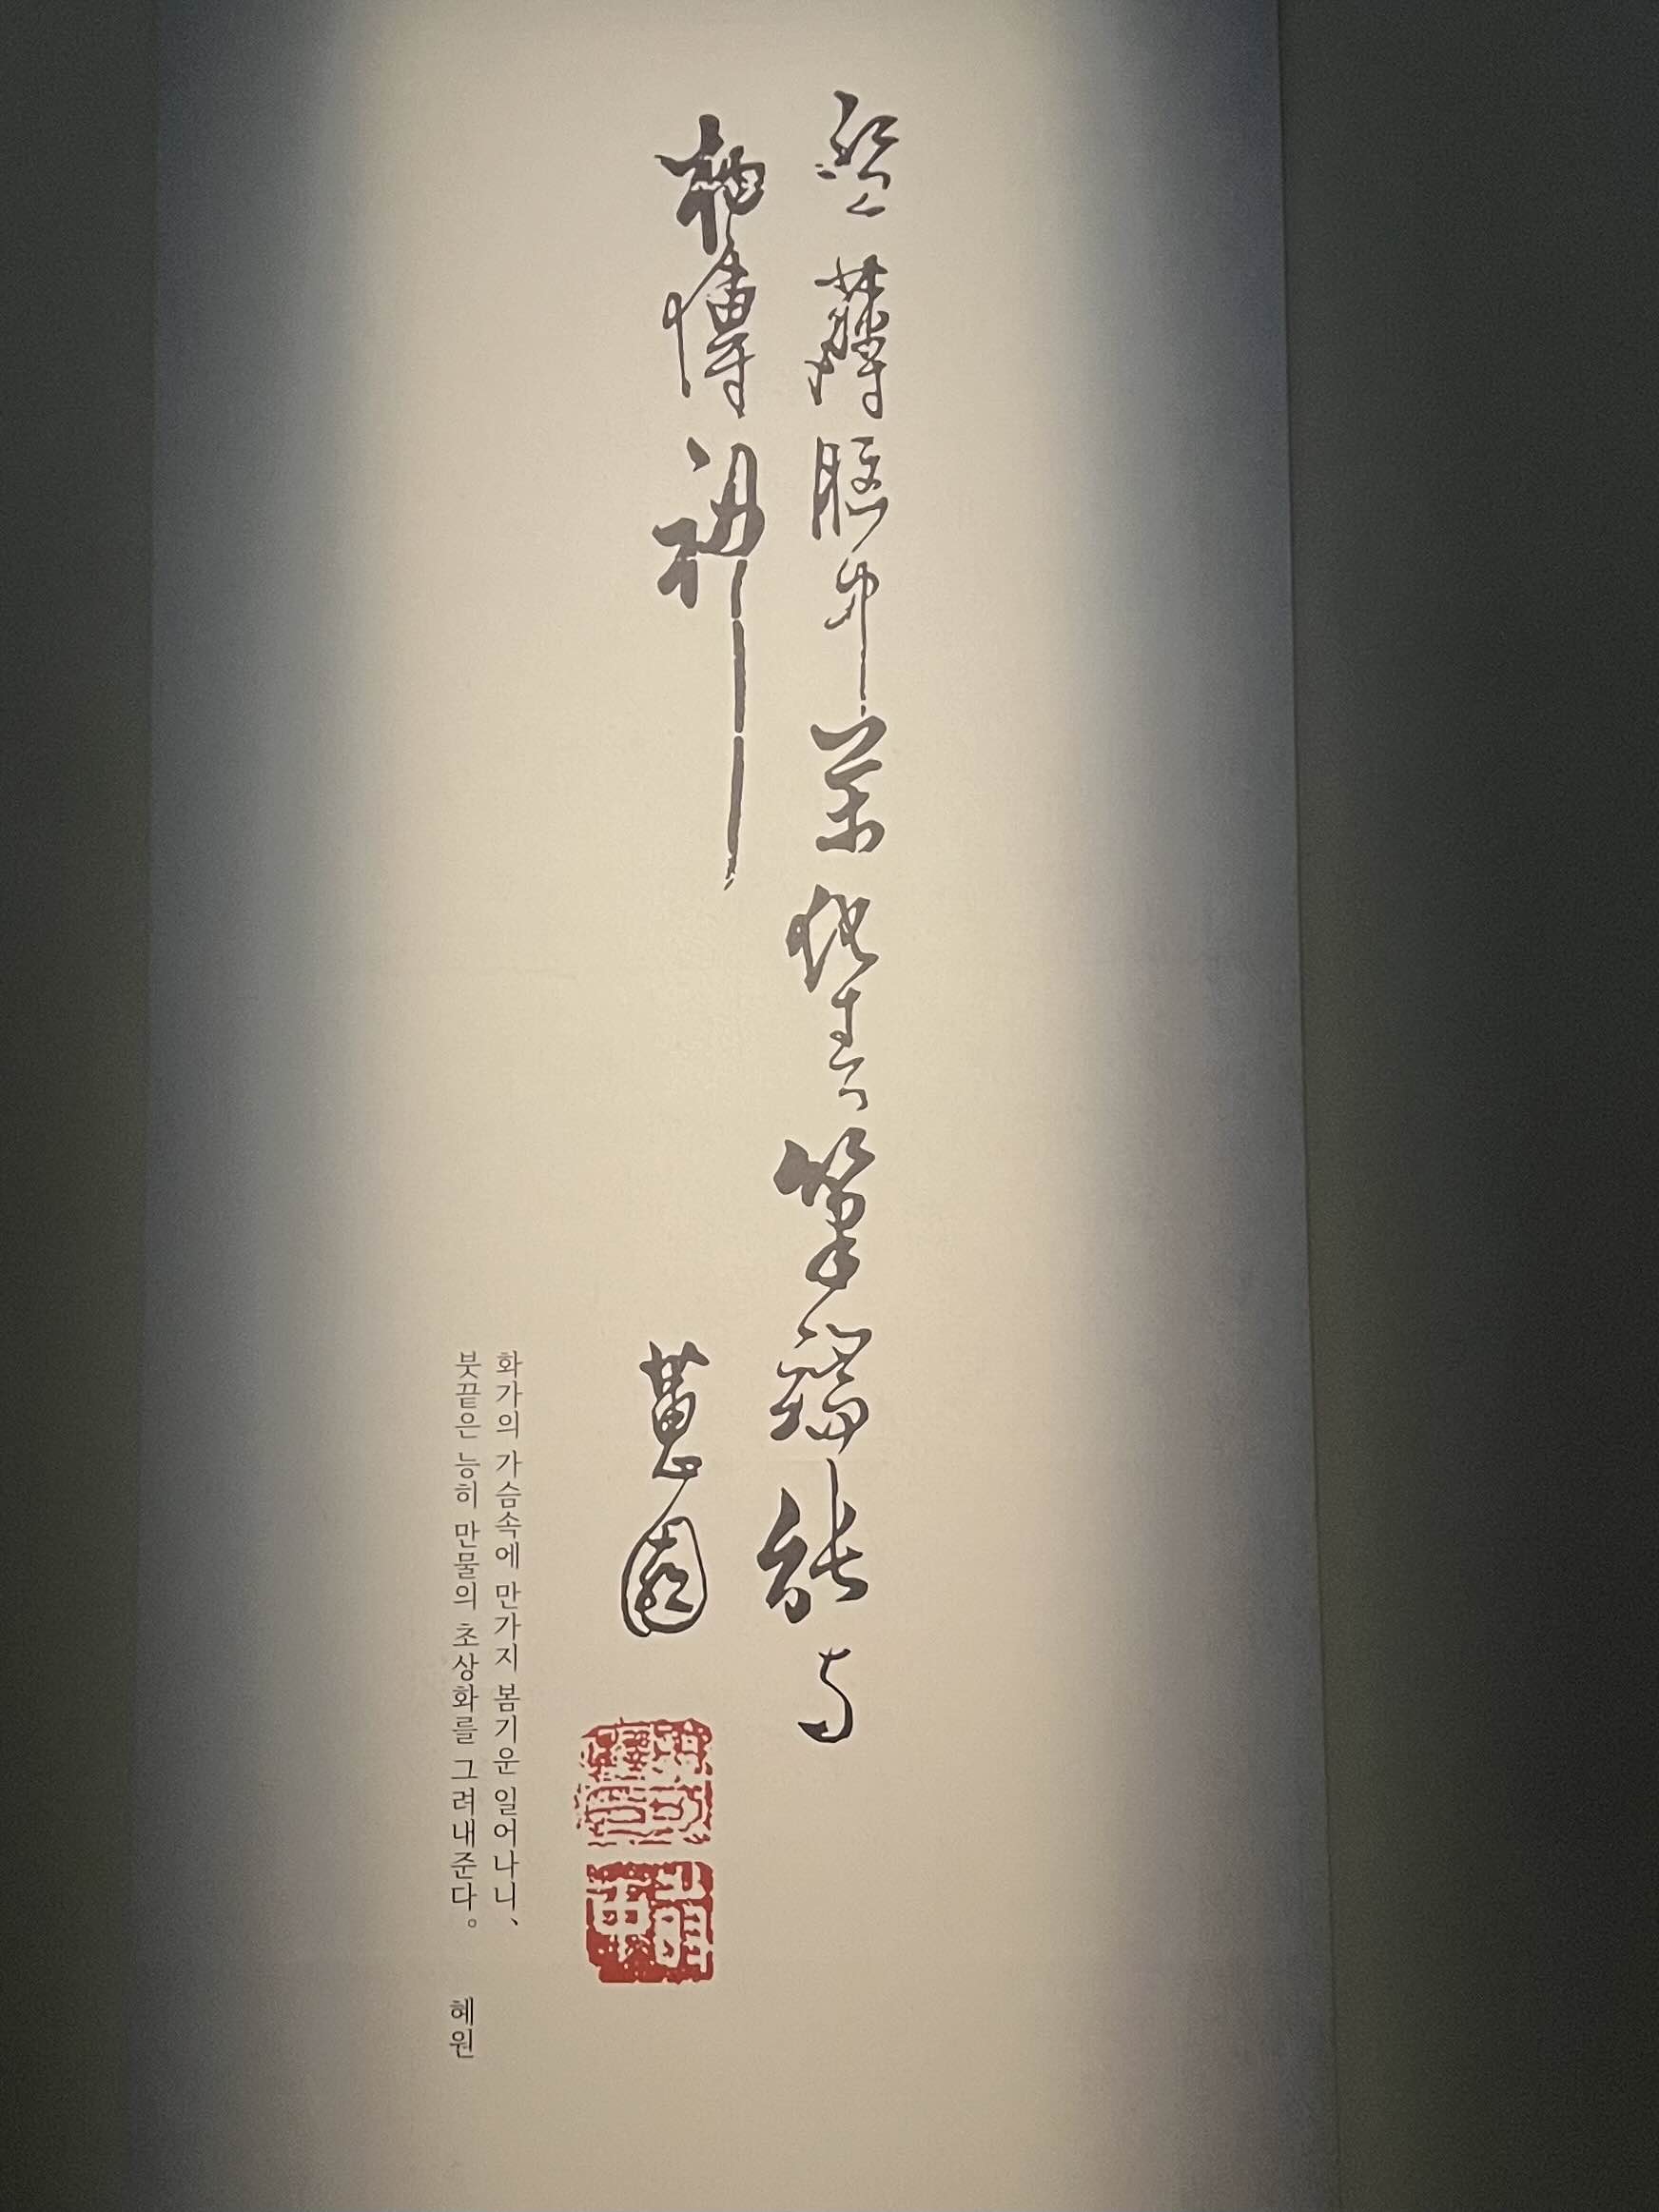 盤薄胸中萬化春筆端能與
物傳神
蕙園
申可權印
時中
화가의 가슴속에 만가지 봄기운 일어나니、
붓끝은 능히 만물의 초상화를 그려내준다。 혜원